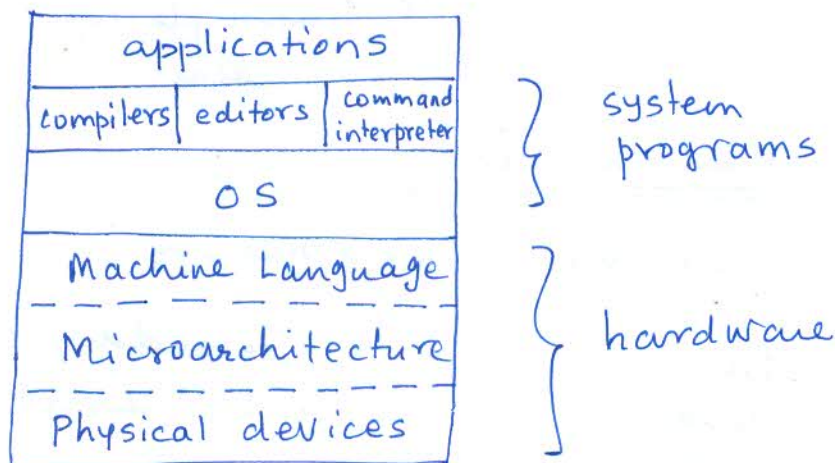 applications
compilers editors command interpreter
OS
system programs
Machine Language
Microarchitecture
Physical devices
hardware